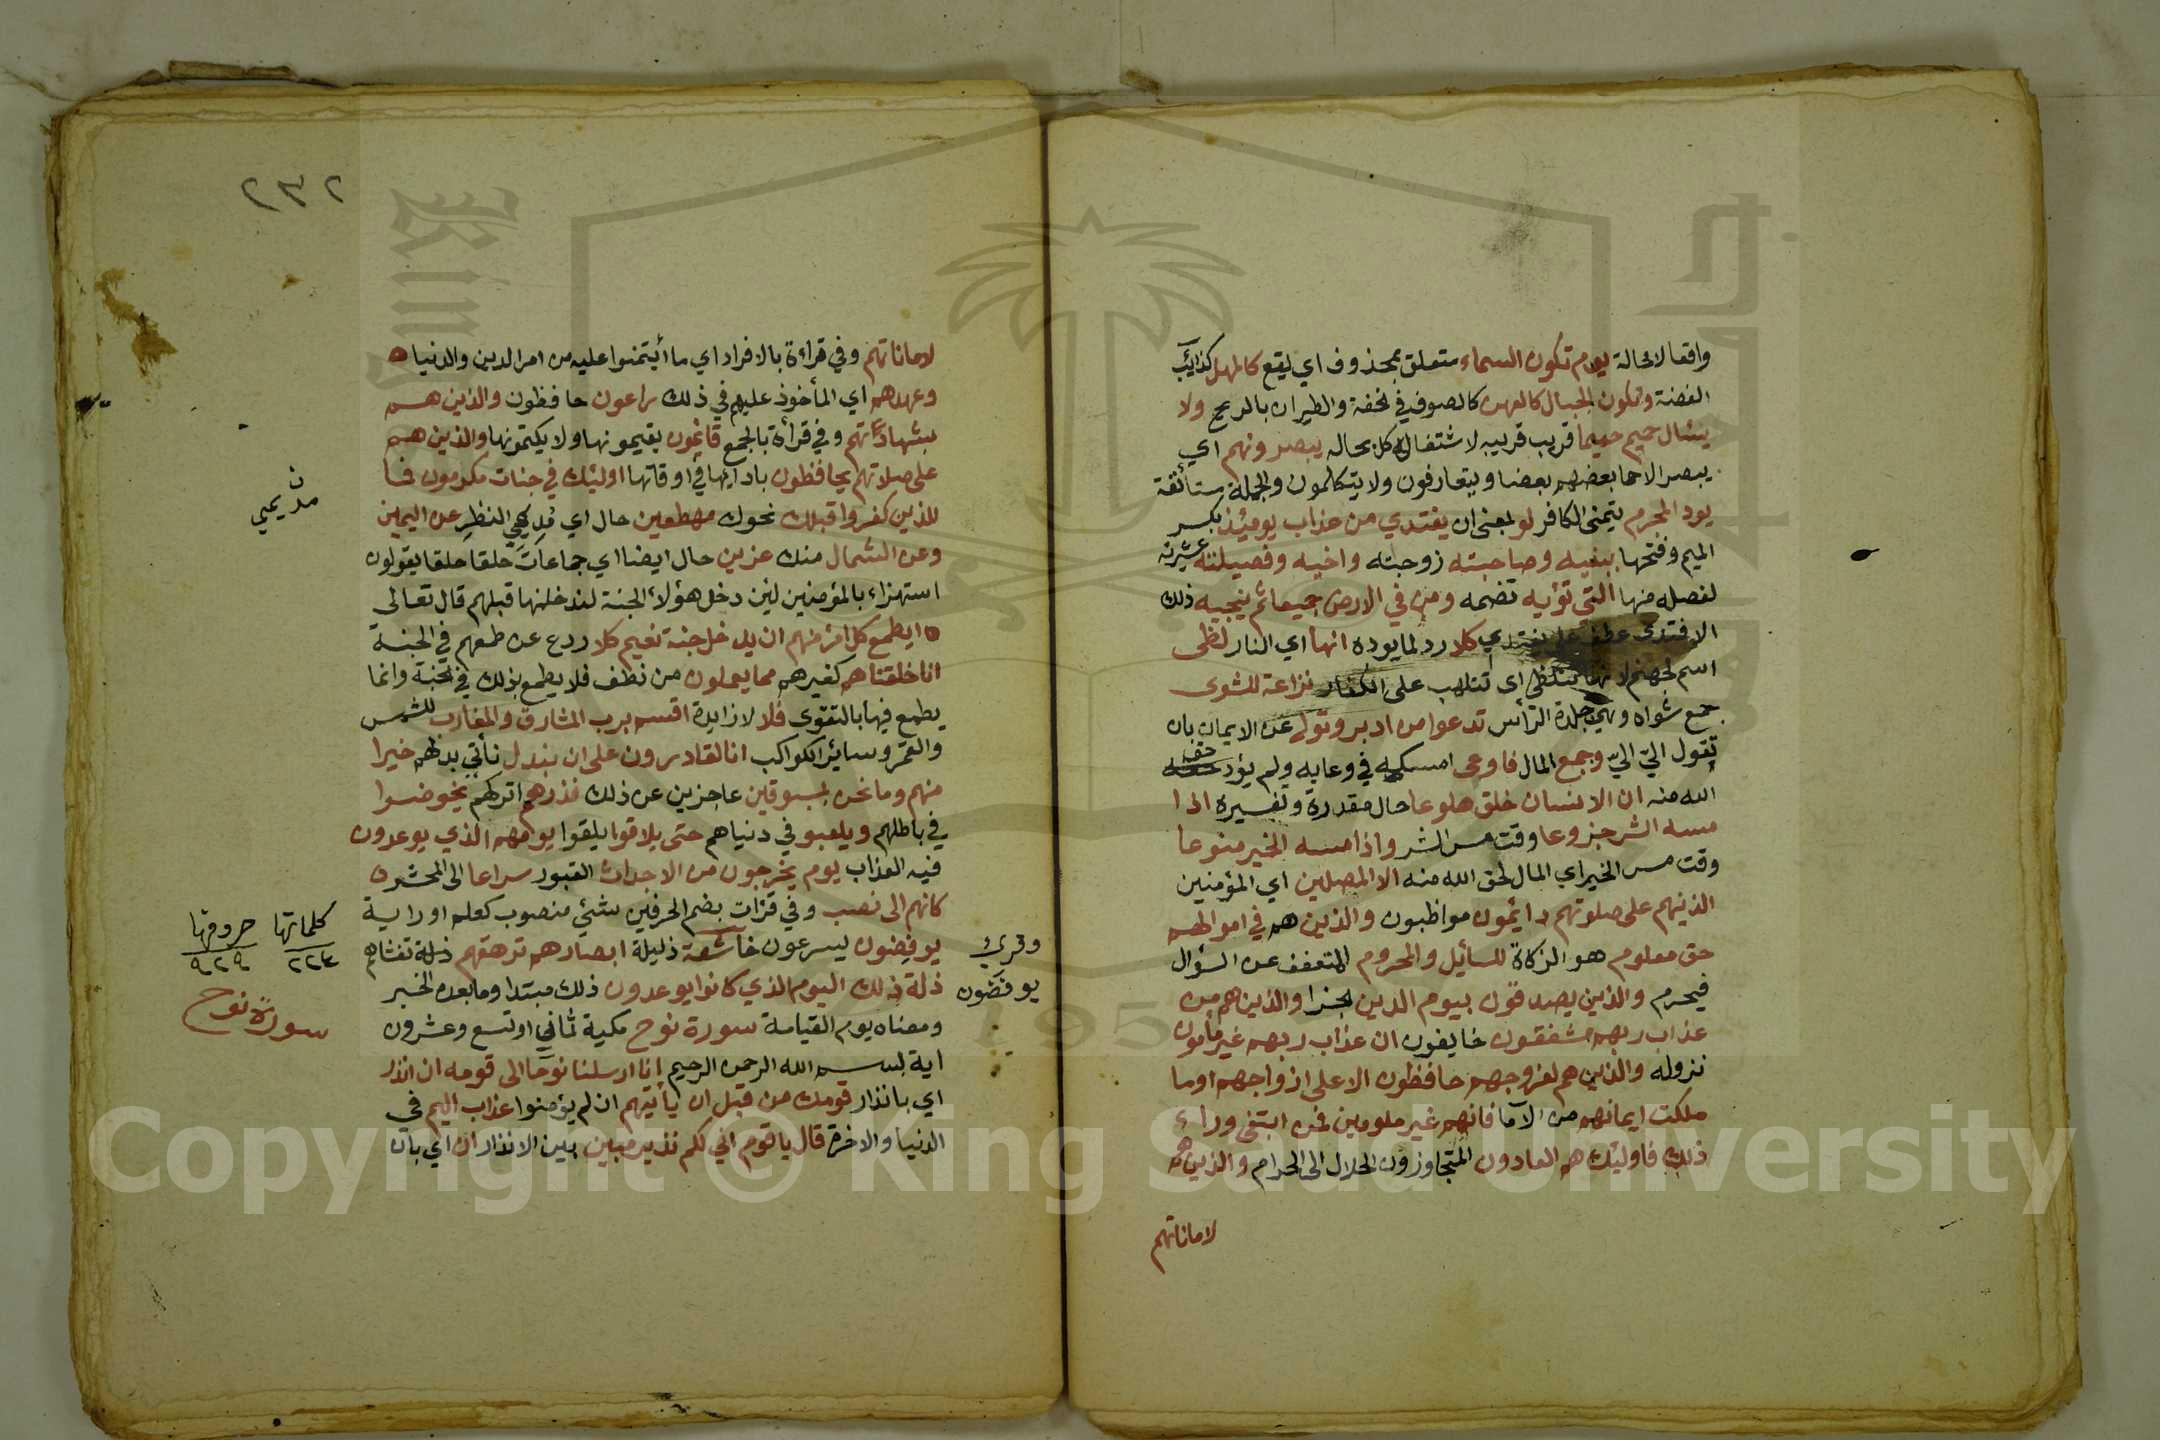 واقعا لا محالة يوم تكون السماء متعلق بمحذوف اي يقع كالمهل كذائب
الفضة وتكون الجبال كالعهن كالصوف في الخفة والطيران بالريح ولا
يسال حميم حميما قريب قريبه لاشتغال كل بحاله يبصرونهم اي
يبصر الاحما بعضهم بعضا ويتعارفون ولا يتكلمون والجملة مستأنفة
يود المجرم يتمنى الكافر لو بمعنى ان يفتدي من عذاب يومئذ بكسر
الميم وفتحها ببنيه وصاحبته زوجته واخيه وفصيلته عشيرته
لفصله منها التي تؤيه تضمه ومن في الارض جميعا ثم ينجيه ذلك
الافتدى عطف على يفتدي كلا رد لما يوده انها اي النار لظى
اسم لجهنم لانها تتلظى اى تتلهب على الكفار نزاعة للشوى
جمع شواه وهي جلدة الرأس تدعوا من ادبر وتولى عن الايمان بان
تقول اليّ اليّ وجمع المال فاوعى امسكه في وعايه ولم يؤد حق
الله منه ان الانسان خلق هلوعا حال مقدرة وتفسيره اذا
مسه الشر جزوعا وقت مس الشر واذا مسه الخير منوعا
وقت مس الخير اي المال لحق الله منه الا المصلين اي المؤمنين
الذينهم على صلوتهم دائمون مواظبون والذين هم في اموالهم
حق معلوم هو الزكاة للسائل والمحروم المتعفف عن السؤال
فيحرم والذين يصدقون بيوم الدين الجزا والذين هم من
عذاب ربهم مشفقون خايفون ان عذاب ربهم غير مأمون
نزوله والذين هم لفروجهم حافظون الا على ازواجهم اوما
ملكت ايمانهم من الآما فانهم غير ملومين فمن ابتغى وراء
ذلك فاوليك هم العادون المتجاوزون الحلال الى الحرام والذين هم
لاماناتهم
٢٣٢
لاماناتهم وفي قراءة بالافراد اي ما أيتمنوا عليه من امر الدين والدنيا
وعهدهم اي المأخوذ عليهم في ذلك راعون حافظون والذين هم
بشهاداتهم وفي قرأة بالجمع قائمون يقيمونها ولا يكتمونها والذين هم
على صلاتهم يحافظون باداىها في اوقاتها اوليك في جنات مكرمون فما
للذين كفروا قبلك نحوك مهطعين حال اي مديمي النظر عن اليمين
مديمي
وعن الشمال منك عزين حال ايضا اي جماعات حلقا حلقا يقولون
استهزاء بالمؤمنين لين دخل هؤلاء الجنة لندخلنها قبلهم قال تعالى
ايطمع كل امرء منهم ان يدخل جنة نعيم كلا ردع عن طمعهم في الجنة
انا خلقناهم كغيرهم مما يعلمون من نطف فلا يطمع بذلك في الجنة وانما
يطمع فيها بالتقوى فلا لا زايدة اقسم برب المشارق والمغارب للشمس
والقمر وسائر الكواكب انا لقادرون على ان نبدل نأتي بدلهم خيرا
منهم وما نحن بمسبوقين عاجزين عن ذلك فذرهم اتركهم يخوضوا
في باطلهم ويلعبو في دنياهم حتى يلاقوا يلقوا يومهم الذي يوعدون
فيه العذاب يوم يخرجون من الاجداث القبور سراعا الى المحشر
كانهم الى نصب وفي قرات بضم الحرفين شئي منصوب كعلم او راية
يوفضون يسرعون خاشعة ذليلة ابصارهم ترهقهم ذلة تغشاهم
وقرى
يوفضون
كلماتها حروفها
٢٢٤ ٩٢٩
ذلة ذلك اليوم الذي كانوا يوعدون ذلك مبتدا وما بعده الخبر
ومعناه يوم القيامة سورة نوح مكية ثماني او تسع وعشرون
سورة نوح
اية بسم الله الرحمن الرحيم انا ارسلنا نوحا الى قومه ان انذر
اي بانذار قومك من قبل ان يأتيهم ان لم يؤمنوا عذاب اليم فى
الدنيا والاخرة قال يا قوم اني لكم نذير مبين بين الانذار ان اي بان
Copyright © King Saud University